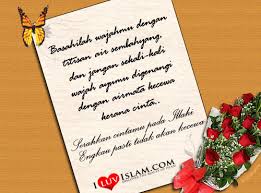 Basahilah wajahmu dengan
titisan air sembahyang,
dan jangan sekali-kali
wajah ayumu digenangi
dengan airmata kecewa
kerana cinta..
Serahkan cintamu pada Illahi
Engkau pasti tidak akan kecewa
I LUV ISLAM.COM